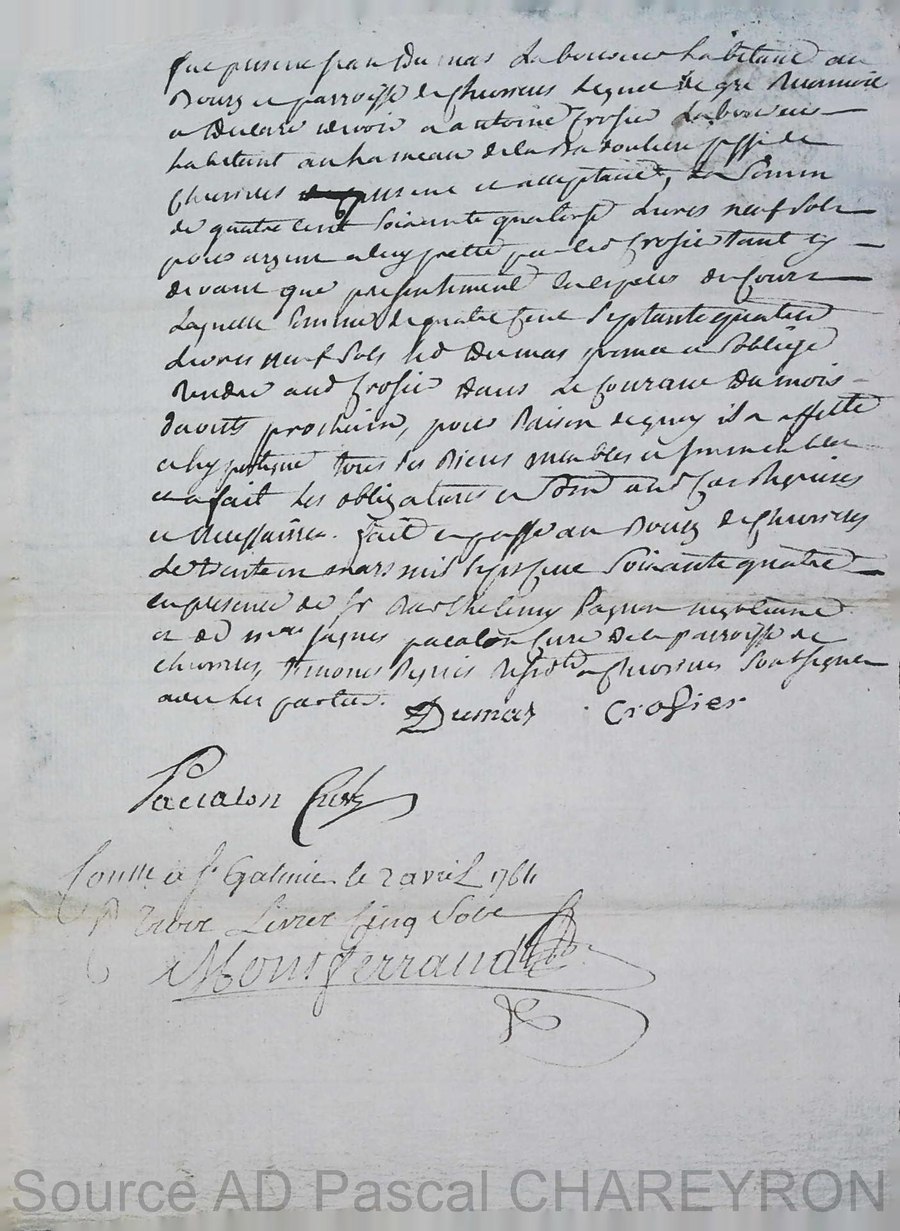 fut present jean Dumas Laboureur habitant au
Bourg et parroisse de Chevrieres lequel de gré reconnoit
et declare devoir a antoine Crosier Laboureur
habitant au hameau de la parroisse de
Chevrieres present et acceptant, La Somme
de quatre cent Soixante quatorze Livres neuf Sols
pour argent a luy pretté par led Crosier tant cy
devant que presentement en especes de Cours
Laquelle Somme de quatre Cent Septante quatre
Livres neuf Sols led Dumas promet et S'oblige
rendre aud Crosier dans Le Courant du mois
daoust prochain, pour Raison de quoy il a affetté
et hypotequé tous ses Biens meubles et immeubles
et a fait les obligations et Soum aud Cas Requises
et necessaires. fait et passé au Bourg de Chevrieres
Le trente un mars mil Sept Cent Soixante quatre
en presence de Sr Barthelemy Pagnon negotiant
et de mre jaques pacalon Curé de la parroisse de
chevrieres, temoins Requis Residts a Chevrieres Soussignes
avec Les parties.
Dumas Crosier
Pacalon Curé
Contté a St Galmier le 2 avril 1764
R Trois Livres Cinq Sols
Montferrand
Source AD Pascal CHAREYRON